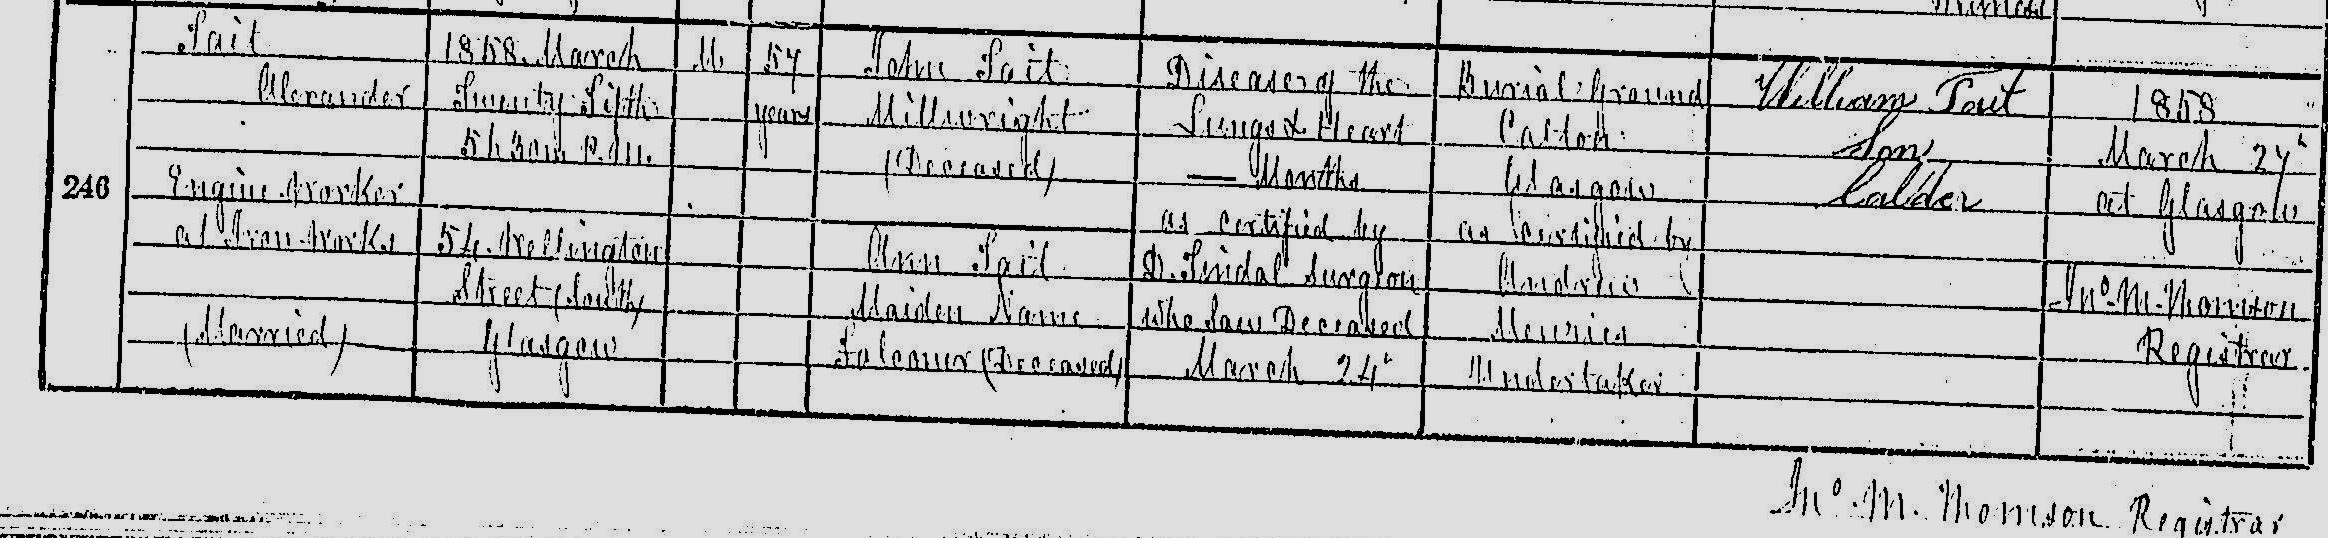 246
Tait
Alexander
Engine Worker
at Iron Works
(Married)
1858. March
Twenty Fifth
5h. 30m P.M.
54 Wellington
Street (South)
Glasgow
M
57
years
John Tait
Millwright
(Deceased)
Ann Tait
Maiden Name
Falconer (Deceased)
Disease of the
Lungs & Heart
— Months
as certified by
D. Tindal Surgeon
who saw Deceased
March 24"
Burial Ground
Calton
Glasgow
as certified by
Andrew
Menzies
Undertaker
William Tait
Son
Calder
1858
March 27"
at Glasgow
Jnº M. Thomson
Registrar.
Jnº M. Thomson Registrar